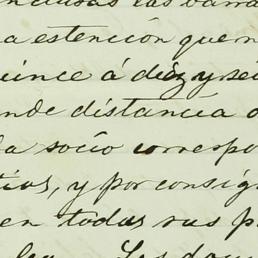 la estención que n
quince á diez y sei
nde distancia
la socio correspo
tios, y por consig
en todas sus p